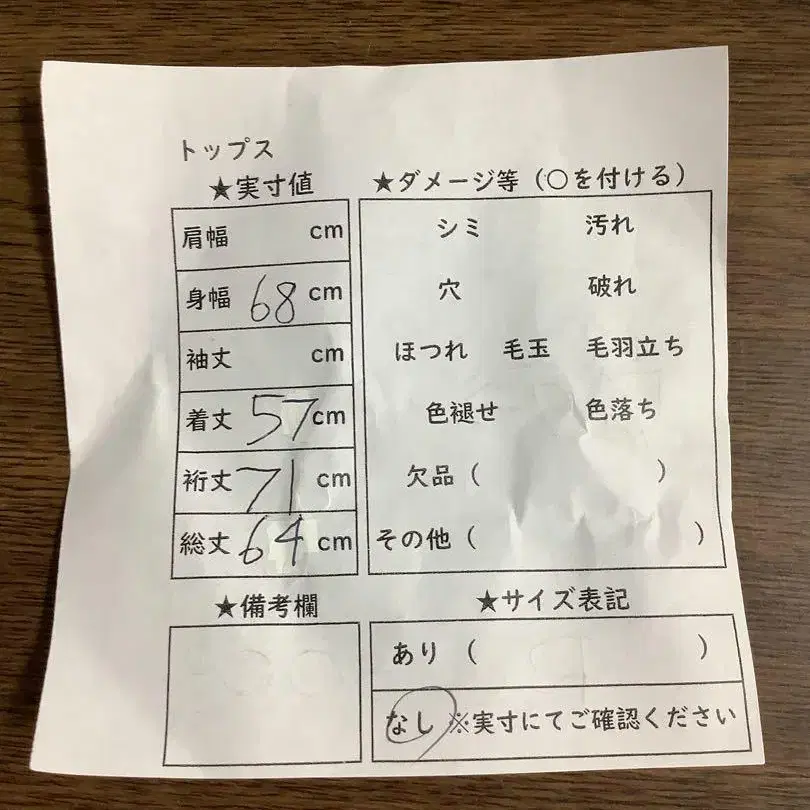 トップス
★実寸値
肩幅 cm
身幅 68 cm
袖丈 cm
着丈 57 cm
裄丈 71 cm
総丈 64 cm
★ダメージ等（○を付ける）
シミ 汚れ
穴 破れ
ほつれ 毛玉 毛羽立ち
色褪せ 色落ち
欠品（ ）
その他（ ）
★備考欄
★サイズ表記
あり（ ）
なし ※実寸にてご確認ください